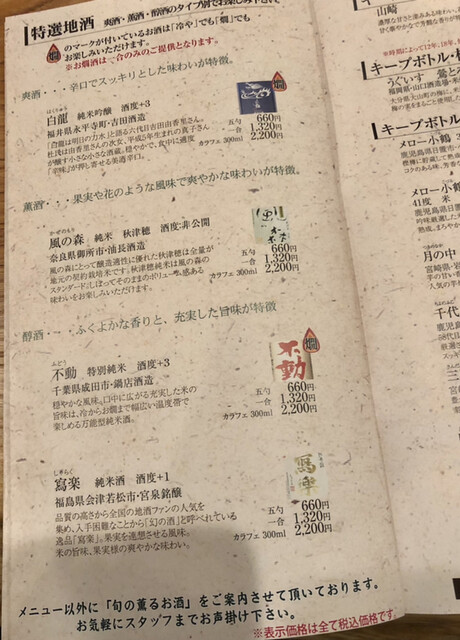 特選地酒 爽酒・薫酒・醇酒のタイプ別でお楽しみ下さい
燗のマークが付いているお酒は「冷や」でも「燗」でも
お楽しみいただけます。
※お燗酒は一合のみのご提供となります。
爽酒・・・辛口でスッキリとした味わいが特徴。
はくりゅう
白龍 純米吟醸 酒度+3
福井県永平寺町・吉田酒造
五勺 660円
一合 1,320円
カラフェ 300ml 2,200円
薫酒・・・果実や花のような風味で爽やかな味わいが特徴。
かぜのもり
風の森 純米 秋津穂 酒度:非公開
奈良県御所市・油長酒造
風の森にとって醸造適性に優れた秋津穂は全量が
地元の契約栽培米です。秋津穂純米は風の森の
スタンダードにしぼってそのままのボリューム感ある
味わいをお楽しみいただけます。
五勺 660円
一合 1,320円
カラフェ 300ml 2,200円
醇酒・・・ふくよかな香りと、充実した旨味が特徴
ふどう
不動 特別純米 酒度+3
千葉県成田市・鍋店酒造
穏やかな風味。口中に広がる充実した米の
旨味は、冷からお燗まで幅広い温度帯で
楽しめる万能型純米酒。
燗
不動
五勺 660円
一合 1,320円
カラフェ 300ml 2,200円
しゃらく
寫楽 純米酒 酒度+1
福島県会津若松市・宮泉銘醸
品質の高さから全国の地酒ファンの人気を
集め、入手困難なことから「幻の酒」と呼べれている
逸品「寫楽」。果実を連想させる風味。
米の旨味、果実様の爽やかな味わい。
寫楽
五勺 660円
一合 1,320円
カラフェ 300ml 2,200円
メニュー以外に「旬の薫るお酒」をご案内させて頂いております。
お気軽にスタッフまでお声掛け下さい。
※表示価格は全て税込価格です。
山崎
キープボトル・
うぐいす
キープボトル
メロー小鶴
メロー小鶴
41度
月の中
千代